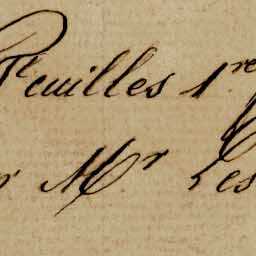 Feuilles 1.re
r Mr Les